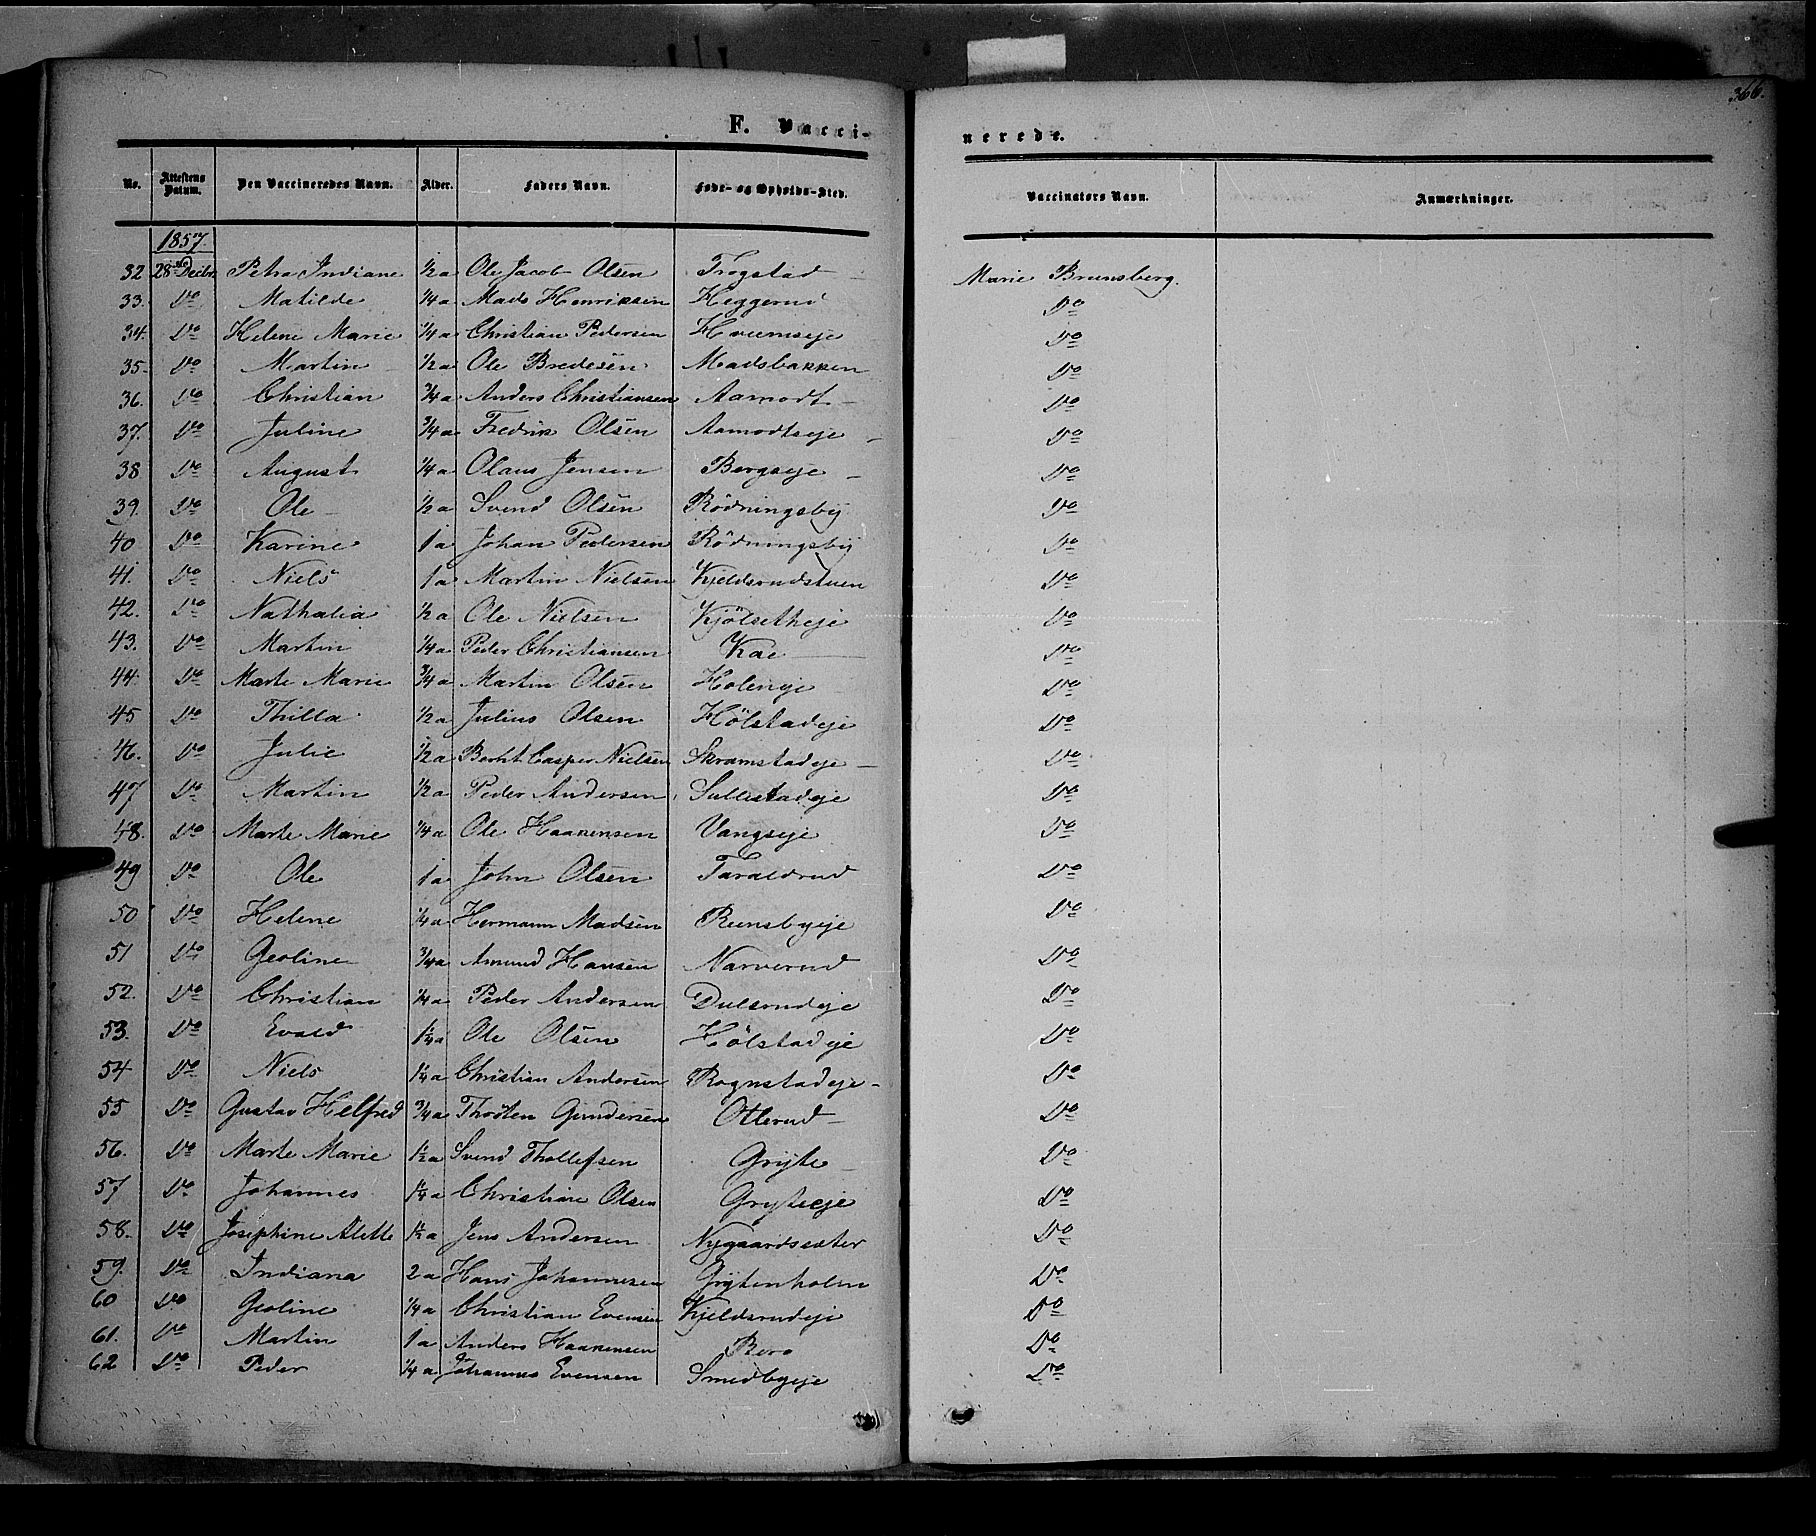 366.
F. Vaccinerede.
No. | Attestens Datum. | Den Vaccineredes Navn. | Alder. | Faders Navn. | Føde- og Opholds-Sted. | Vaccinators Navn. | Anmærkninger.
1857.
32 28de Decbr. Petra Indiane 1/2 a Ole Jacob Olsen Trogstad Marie Brunsberg.
33. Do Matilde 1/4 a Mads Henriksen Heggerud Do
34. Do Helene Marie 1/4 a Christian Pedersen Hveemseje Do
35. Do Martin 1/2 a Ole Bredesen Madsbakken Do
36. Do Christian 3/4 a Anders Christiansen Aamodt Do
37. Do Juline 3/4 a Fredrik Olsen Aamodtseje Do
38 Do August 1/4 a Olaus Jensen Bergseje Do
39. Do Ole 1/2 a Svend Olsen Rödningsby Do
40 Do Karine 1 a Johan Pedersen Rödningsby Do
41. Do Niels 1 a Martin Nielsen Kjeldsrudstuen Do
42. Do Nathalia 1/2 a Ole Nielsen Kjölsetheje Do
43. Do Martin 1/4 a Peder Christiansen Kae Do
44. Do Marte Marie 3/4 a Martin Olsen Holeneje Do
45 Do Thilla 1/2 a Julius Olsen Hölstadeje Do
46. Do Julie 1/2 a Bernt Casper Nielsen Skramstadeje Do
47 Do Martin 1/2 a Peder Andersen Sullestadeje Do
48. Do Marte Marie 1/4 a Ole Haakensen Vangseje Do
49 Do Ole 1 a John Olsen Taraldrud Do
50 Do Helene 1/4 a Hermann Madsen Reensbyeje Do
51 Do Geoline 3/4 a Amund Hansen Narverud Do
52. Do Christian 1/4 a Peder Andersen Dulsrudeje Do
53. Do Evald 1 1/4 a Ole Olsen Hölstadeje Do
54 Do Niels 1 1/4 a Christian Andersen Rognstadeje Do
55 Do Gustav Helfred 3/4 a Thosten Gundersen Otterud Do
56. Do Marte Marie 1 1/2 a Svend Thollefsen Gryte Do
57 Do Johannes 1 1/4 a Christian Olsen Gryteeje Do
58. Do Josephine Alette 1 1/2 a Jens Andersen Nygaardsæter Do
59. Do Indiana 2 a Hans Johannesen Grytenholm Do
60 Do Geoline 1/4 a Christian Evensen Kjeldsrudeje Do
61. Do Martin 1 a Anders Haakensen Berg Do
62 Do Peder 1/4 a Johannes Evensen Smedbyeje Do